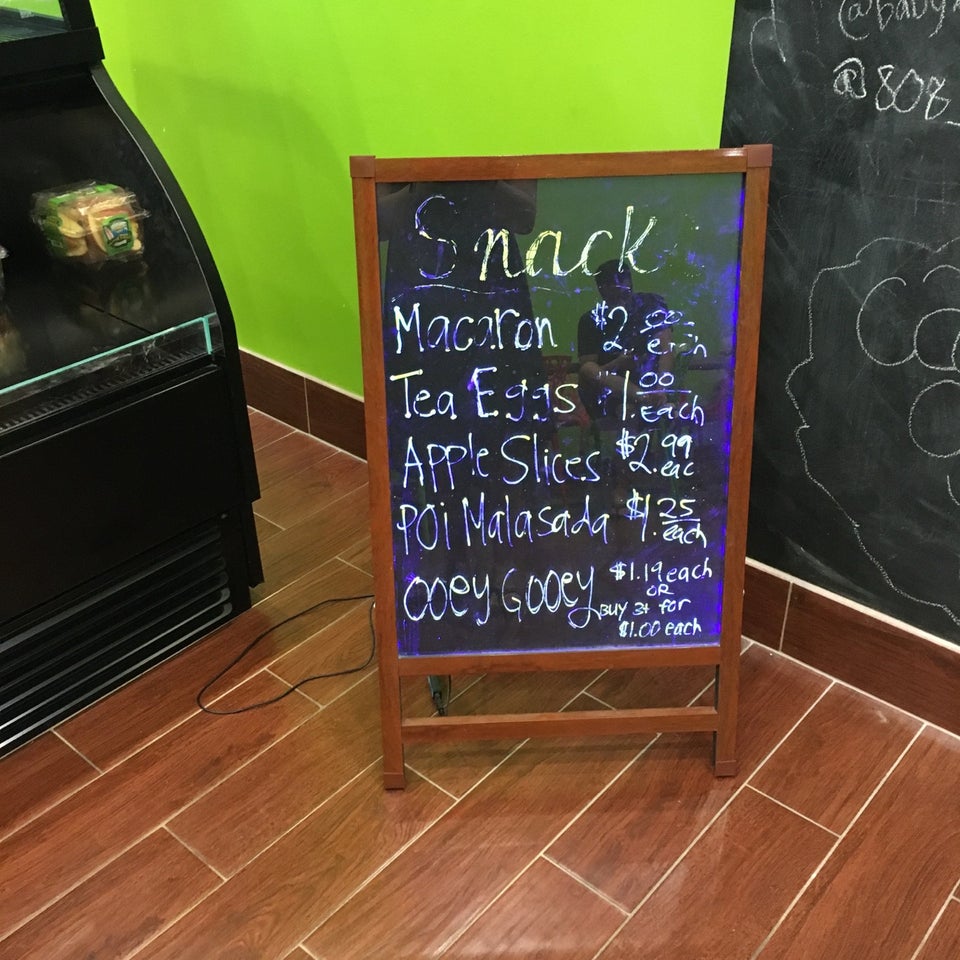 @baby
@808
Snack
Macaron $2.00 each
Tea Eggs $1.00 each
Apple Slices $2.99 eac
Poi Malasada $1.25 each
Ooey Gooey $1.19 each
OR
Buy 3+ for
$1.00 each